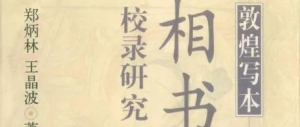 敦煌写本
相书
校录研究
郑炳林 王晶波 著